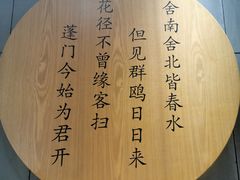 舍南舍北皆春水
但见群鸥日日来
花径不曾缘客扫
蓬门今始为君开